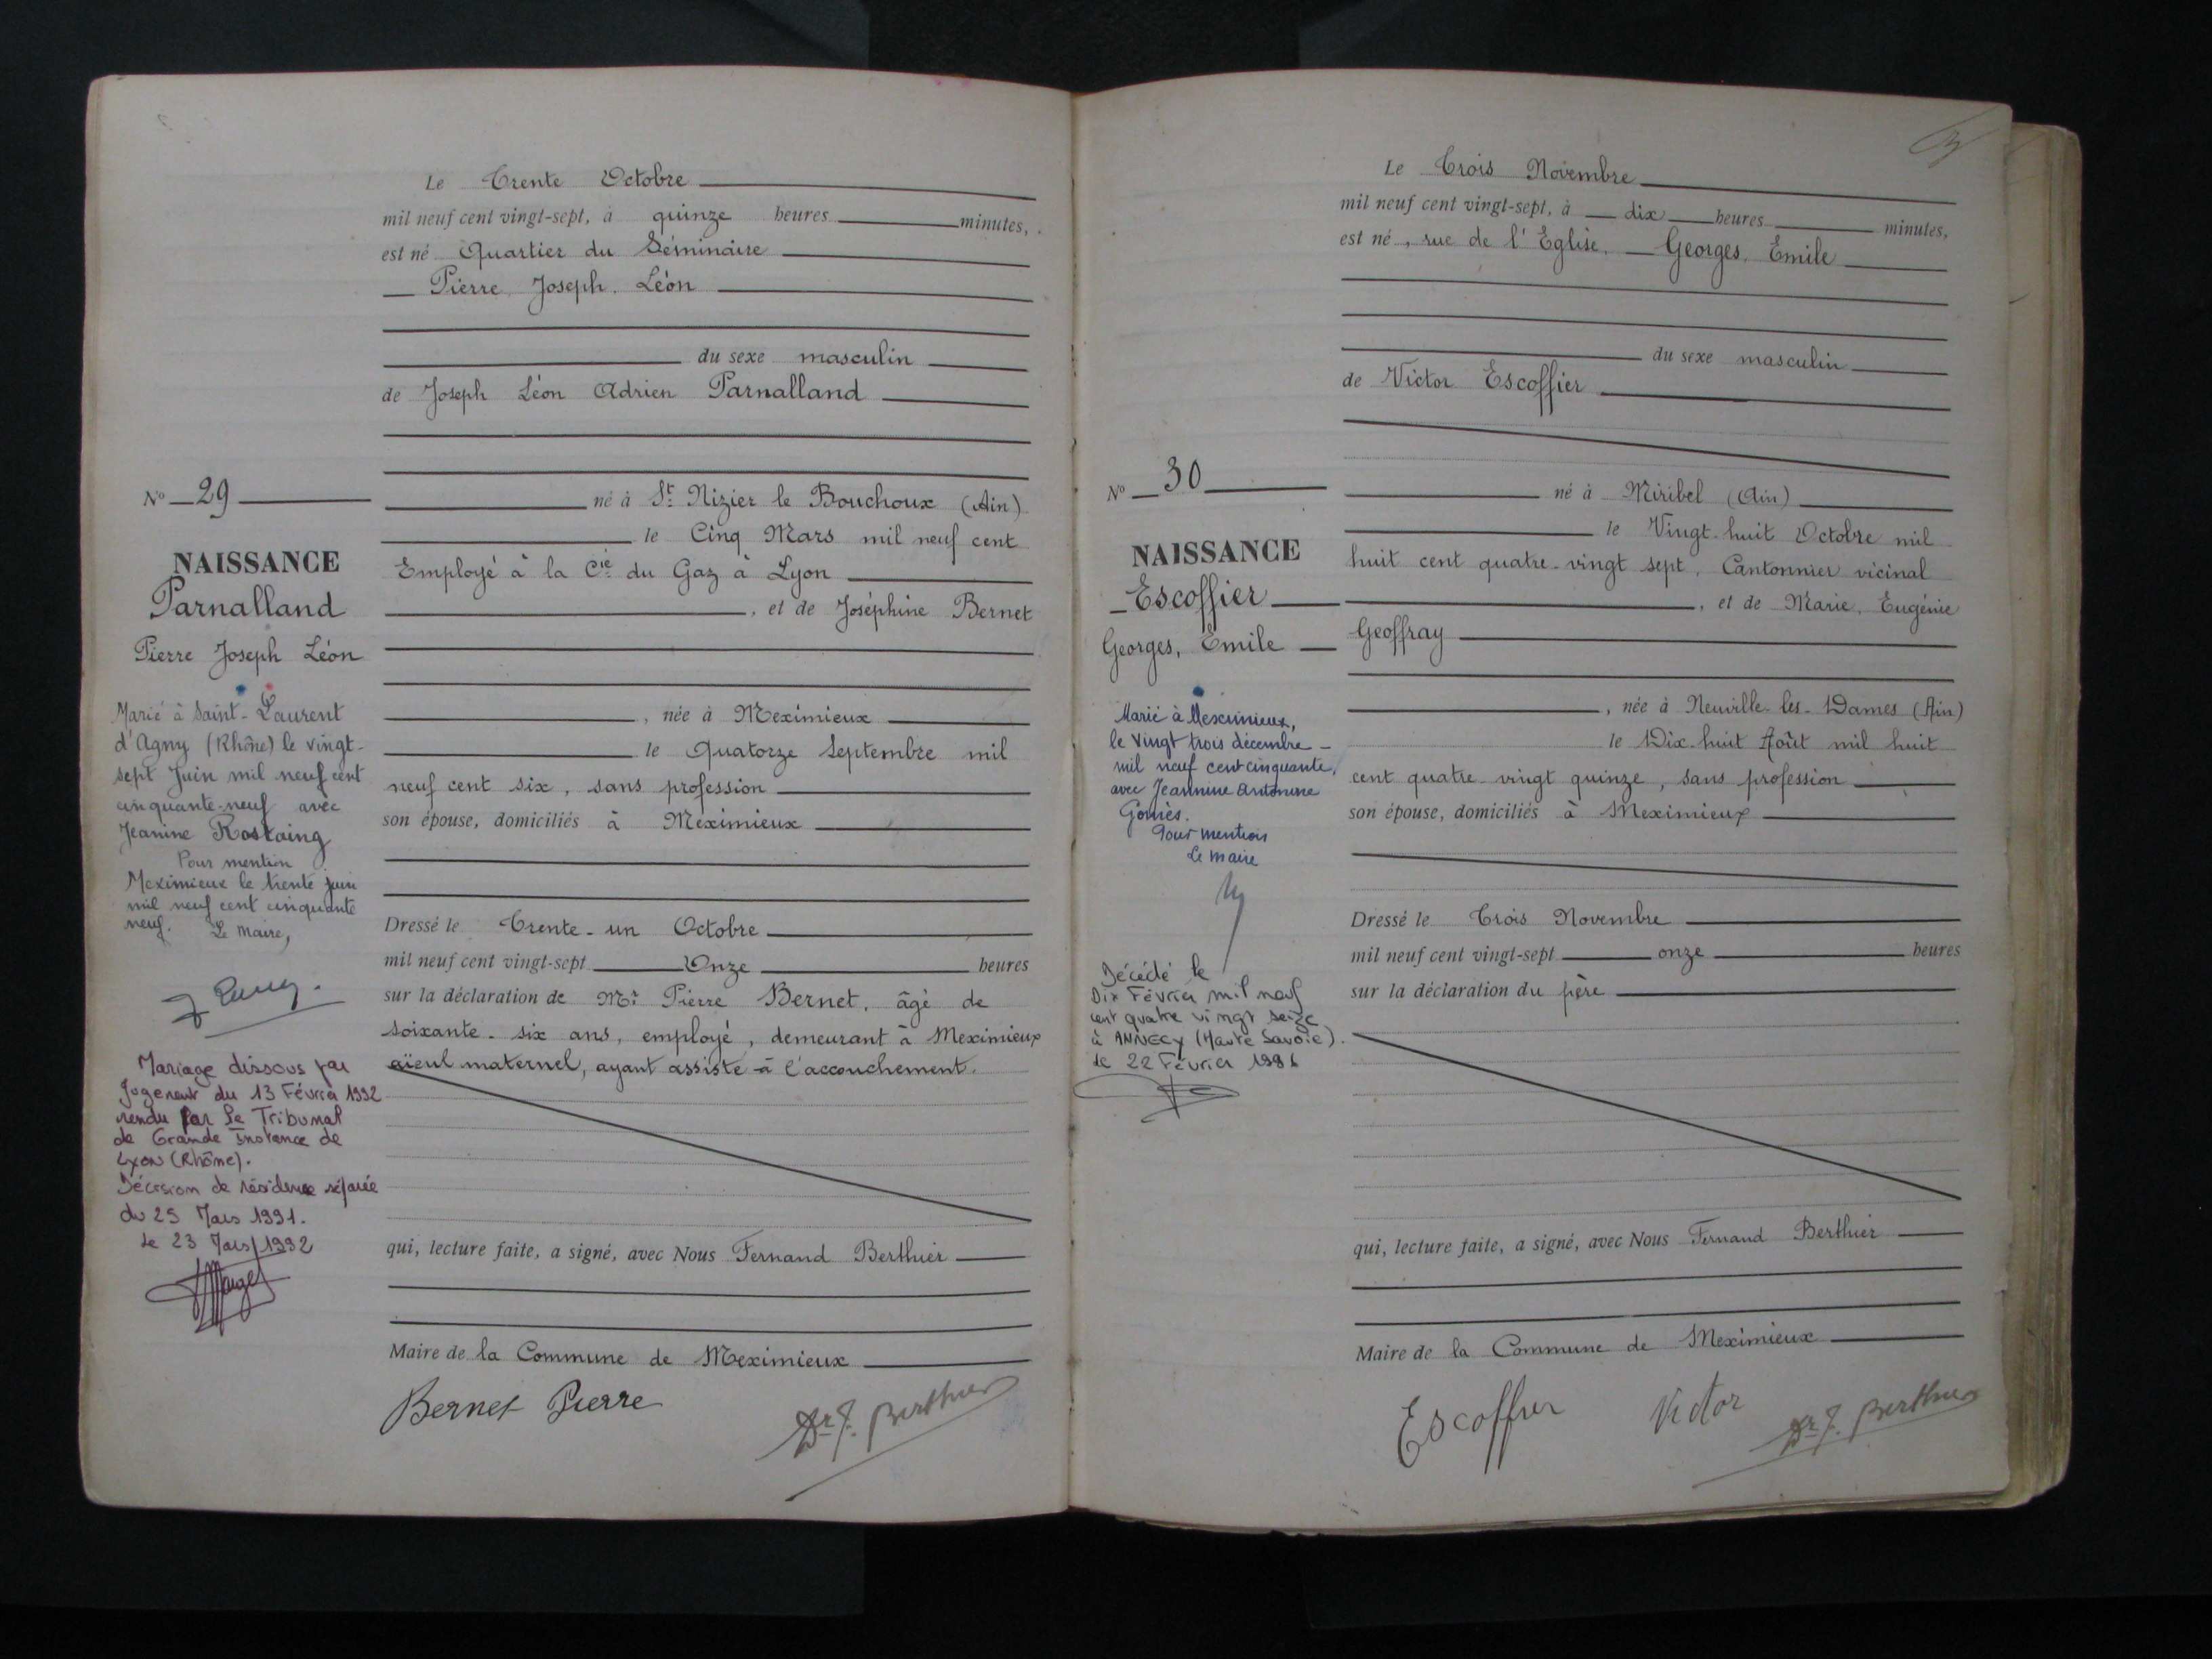 Le Trente Octobre
mil neuf cent vingt-sept, à quinze heures minutes,
est né Quartier du Séminaire
Pierre Joseph Léon
du sexe masculin
de Joseph Léon Adrien Parnalland
né à St Nizier le Bouchoux (Ain)
le Cinq Mars mil neuf cent
Employé à la Cie du Gaz à Lyon
, et de Joséphine Bernet
, née à Meximieux
le Quatorze Septembre mil
neuf cent six, sans profession
son épouse, domiciliés à Meximieux
Dressé le Trente-un Octobre
mil neuf cent vingt-sept Onze heures
sur la déclaration de Mr Pierre Bernet, âgé de
soixante-six ans, employé, demeurant à Meximieux
aïeul maternel, ayant assisté à l'accouchement.
qui, lecture faite, a signé, avec Nous Fernand Berthier
Maire de la Commune de Meximieux
Bernet Pierre
Dr F. Berthier
No 29
NAISSANCE
Parnalland
Pierre Joseph Léon
Marié à Saint-Laurent
d'Agny (Rhône) le vingt-
sept Juin mil neuf cent
cinquante-neuf avec
Jeanine Rostaing
Pour mention
Meximieux le trente juin
mil neuf cent cinquante
neuf. Le Maire,
Mariage dissous par
Jugement du 13 Février 1992
rendu par le Tribunal
de Grande Instance de
Lyon (Rhône).
Décision de résidence séparée
du 25 Mars 1991.
Le 23 Mars 1992
Le Trois Novembre
mil neuf cent vingt-sept, à dix heures minutes,
est né, rue de l'Eglise, Georges, Emile
du sexe masculin
de Victor Escoffier
né à Miribel (Ain)
le Vingt-huit Octobre mil
huit cent quatre-vingt sept, Cantonnier vicinal
, et de Marie, Eugénie
Geoffray
, née à Neuville-les-Dames (Ain)
le Dix-huit Août mil huit
cent quatre-vingt quinze, sans profession
son épouse, domiciliés à Meximieux
Dressé le Trois Novembre
mil neuf cent vingt-sept onze heures
sur la déclaration du père
qui, lecture faite, a signé, avec Nous Fernand Berthier
Maire de la Commune de Meximieux
Escoffier Victor
Dr F. Berthier
No 30
NAISSANCE
Escoffier
Georges, Emile
Marié à Meximieux,
le vingt trois décembre
mil neuf cent cinquante,
avec Jeannine Antonine
Pour mention
Le maire
Décédé le
Dix Février mil neuf
cent quatre vingt seize
à ANNECY (Haute Savoie).
Le 22 Février 1996